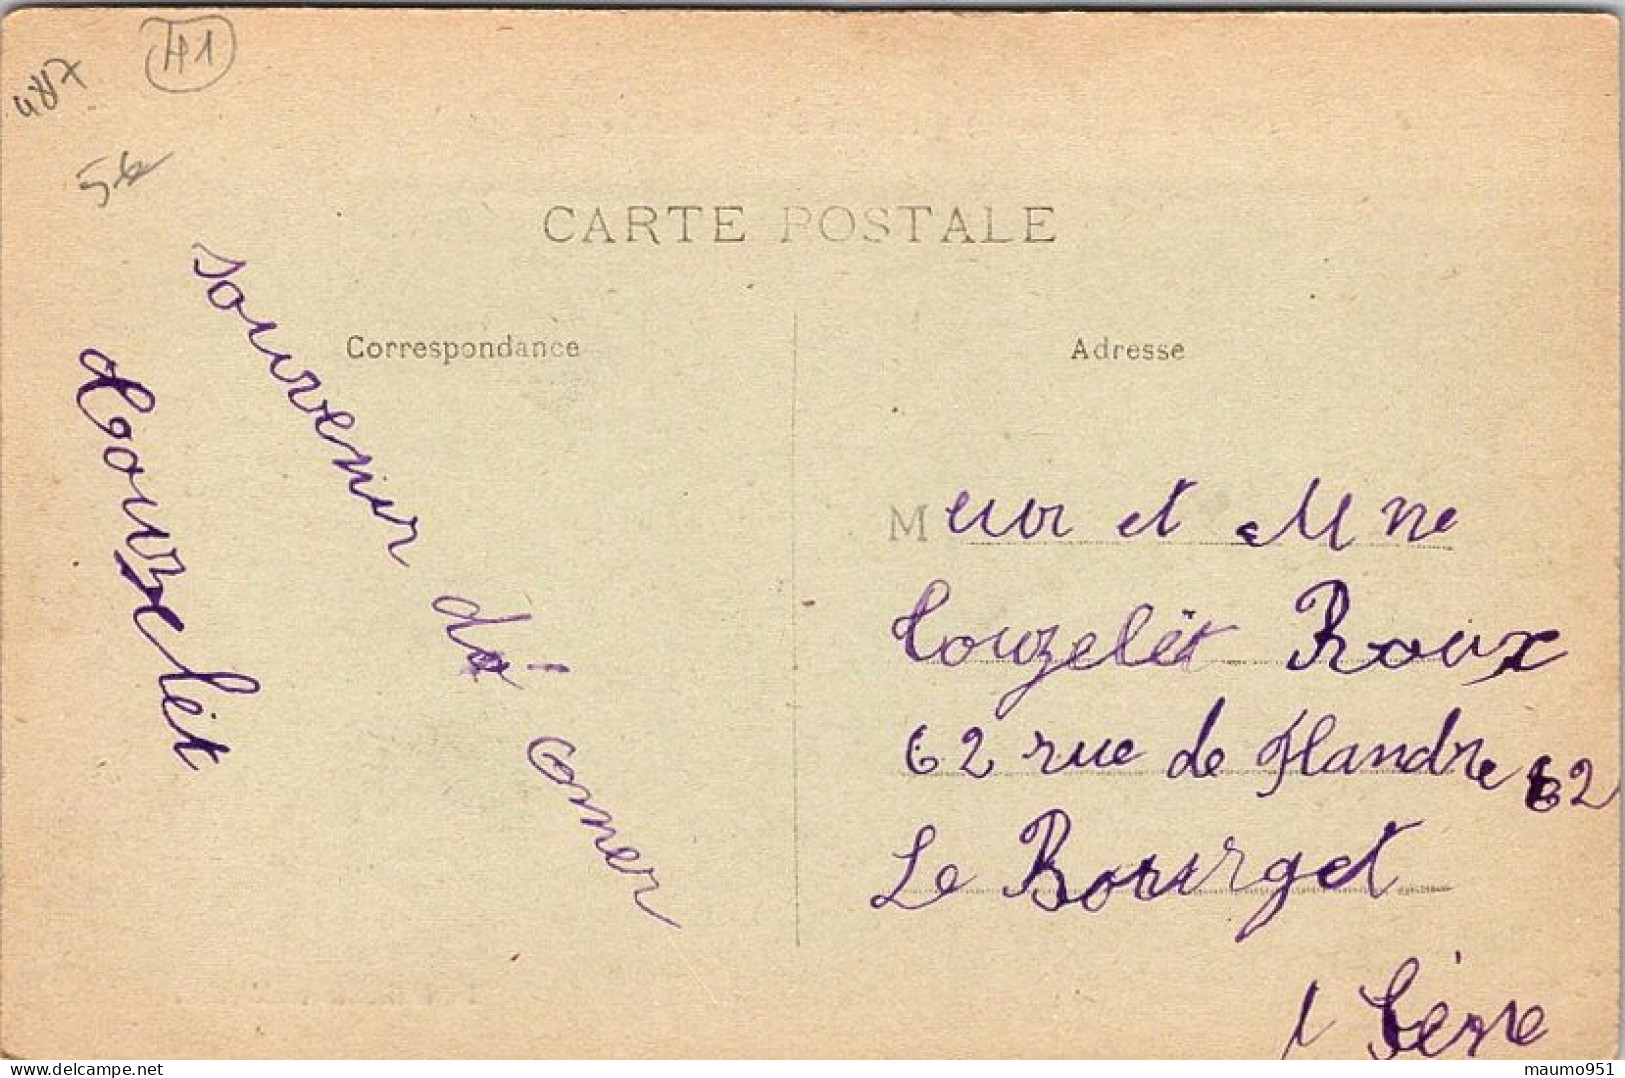 487
H1
56
CARTE POSTALE
Correspondance
Adresse
souvenir dé comer
Houzelét
Meur et Mme
Touzelét Roux
62 rue de Flandre 62
Le Bourget
Sène
maumo951